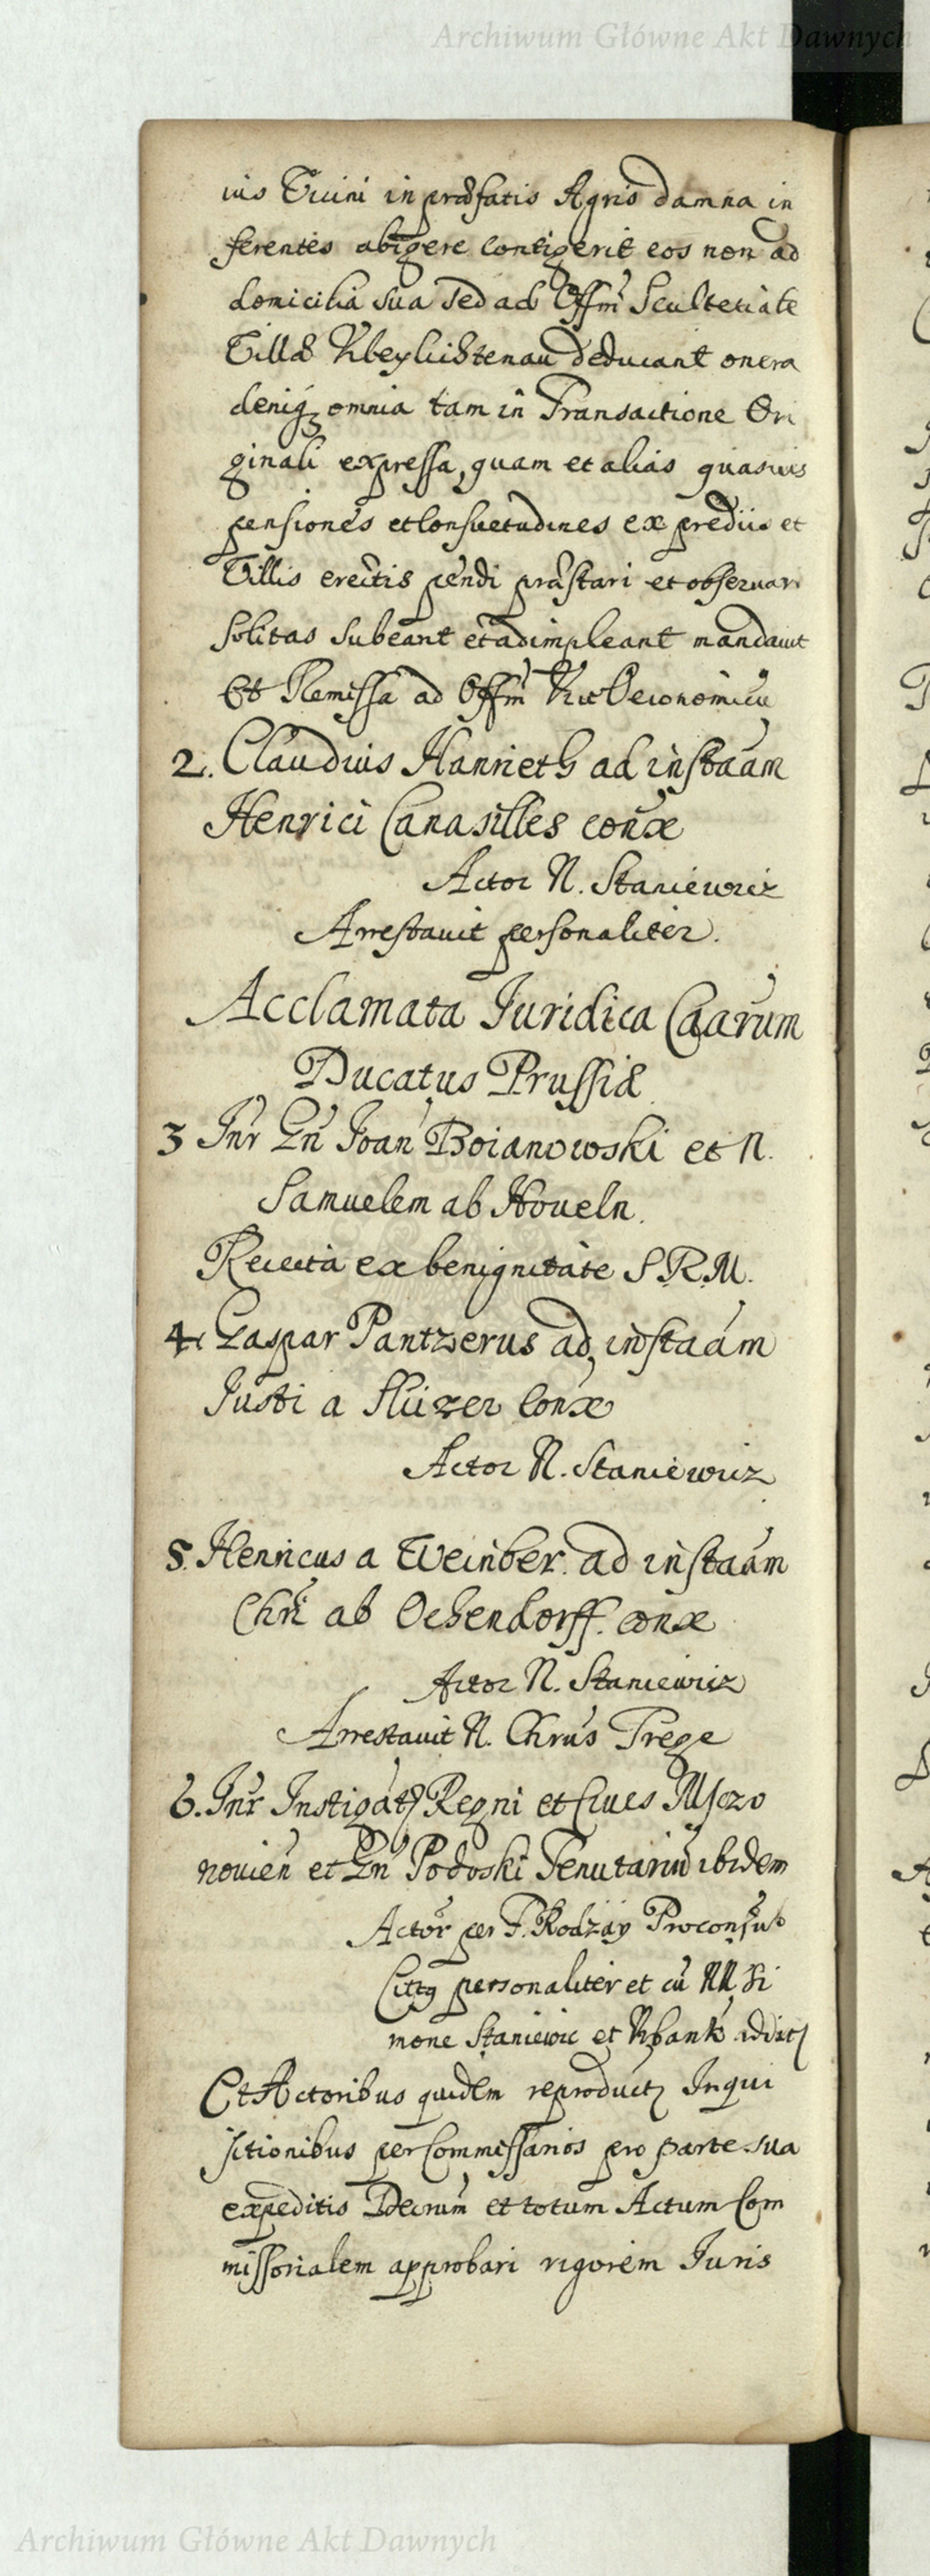 Archiwum Główne Akt Dawnych
ius Vicini in præfatis Agris damna in
ferentes abigere contigerit eos non ad
domicilia sua sed ad Offm̃ Scultetiale
Villæ Kleylichtenau deducant onera
deniq; omnia tam in Transactione Ori
ginali expressa, quam et alias quasvis
pensiones et Consvetudines ex prediis et
Villis erectis pendi præstari et observari
solitas subeant et adimpleant mandavit
Et Remissa ad Offm̃ Oeconomicũ
2. Claudius Hanrieth ad instaãm
Henrici Canasilles conãe
Actor N. Staniewicz
Arrestavit personaliter.
Acclamata Juridica Caãrum
Ducatus Prussiæ
3 Inr̃ Gñ Joañ Boianowski et N.
Samuelem ab Hoveln.
Reiecta ex benignitate S.R.M.
4. Caspar Pantzerus ad instaãm
Justi a Slüzer Conãe
Actor N. Staniewicz
5. Henricus a Weinber. ad instaãm
Chrĩ ab Ochendorff. conãe
Actor N. Staniewicz
Arrestavit N. Chrũs Trege
6. Inr̃ Instigat Regni et Cives Msczo
novieñ et Gñ Podoski Tenutariũ ibidem
Actor per F. Rodzay Proconsul
Citt9 personaliter et cũ NN. Si
mone Staniewic et Urbank additj
Et Actoribus quidem reproductj Inqui
sitionibus per Commissarios pro parte sua
expeditis Decrum̃ et totum Actum Com
missorialem approbari rigorem Juris
Archiwum Główne Akt Dawnych